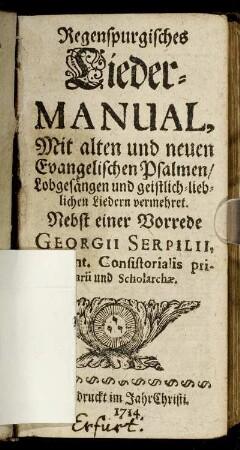 Regenspurgisches
Lieder-
MANUAL,
Mit alten und neuen
Evangelischen Psalmen/
Lobgesängen und geistlich-lieb-
lichen Liedern vermehret.
Nebst einer Vorrede
GEORGII SERPILII,
nt. Consistorialis pri-
arii und Scholarchæ.
druckt im Jahr Christi.
1714.
Erfurt.